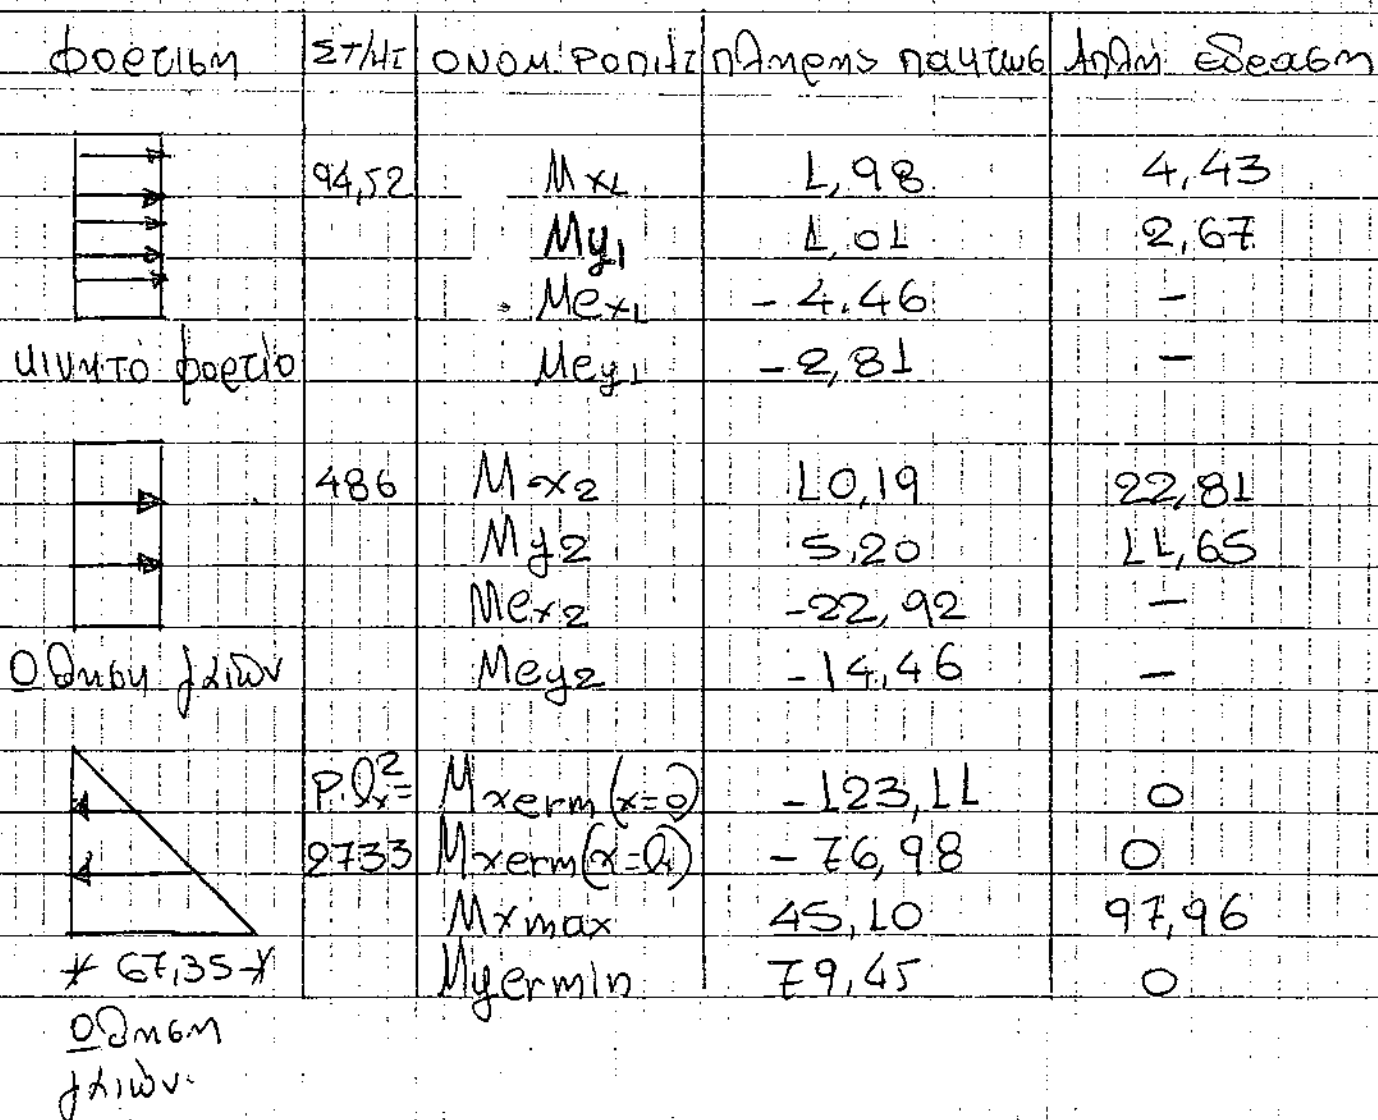 φορτιση ΣΤ/ΗΣ ΟΝΟΜ. ΡΟΠΗΣ πληρης πακτωσ Απλή έδραση
94,52 Mx1 1,98 4,43
My1 1,01 2,67
Mex1 -4.46 -
κινητό φορτίο Mey1 -2,81 -
486 Mx2 10,19 22,81
My2 5,20 11,65
Mex2 -22,92 -
Ωθηση γαιών Mey2 -14,46 -
P.lx²= Mxerm(x=0) -123,11 0
2733 Mxerm(x=lx) -76,98 0
Mxmax 45,10 97,96
67,35 Myermin 79,45 0
Ωθηση
γαιών.